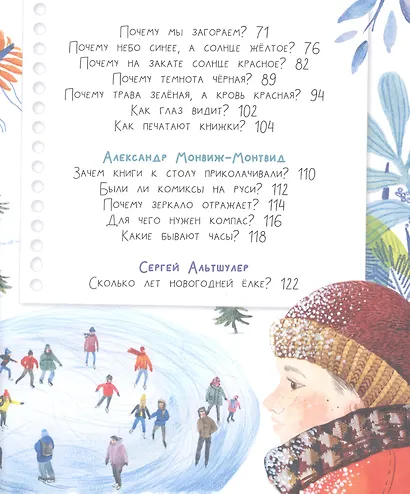 Почему мы загораем? 71
Почему небо синее, а солнце жёлтое? 76
Почему на закате солнце красное? 82
Почему темнота чёрная? 89
Почему трава зелёная, а кровь красная? 94
Как глаз видит? 102
Как печатают книжки? 104
Александр Монвиж-Монтвид
Зачем книги к столу приколачивали? 110
Были ли комиксы на Руси? 112
Почему зеркало отражает? 114
Для чего нужен компас? 116
Какие бывают часы? 118
Сергей Альтшулер
Сколько лет новогодней ёлке? 122